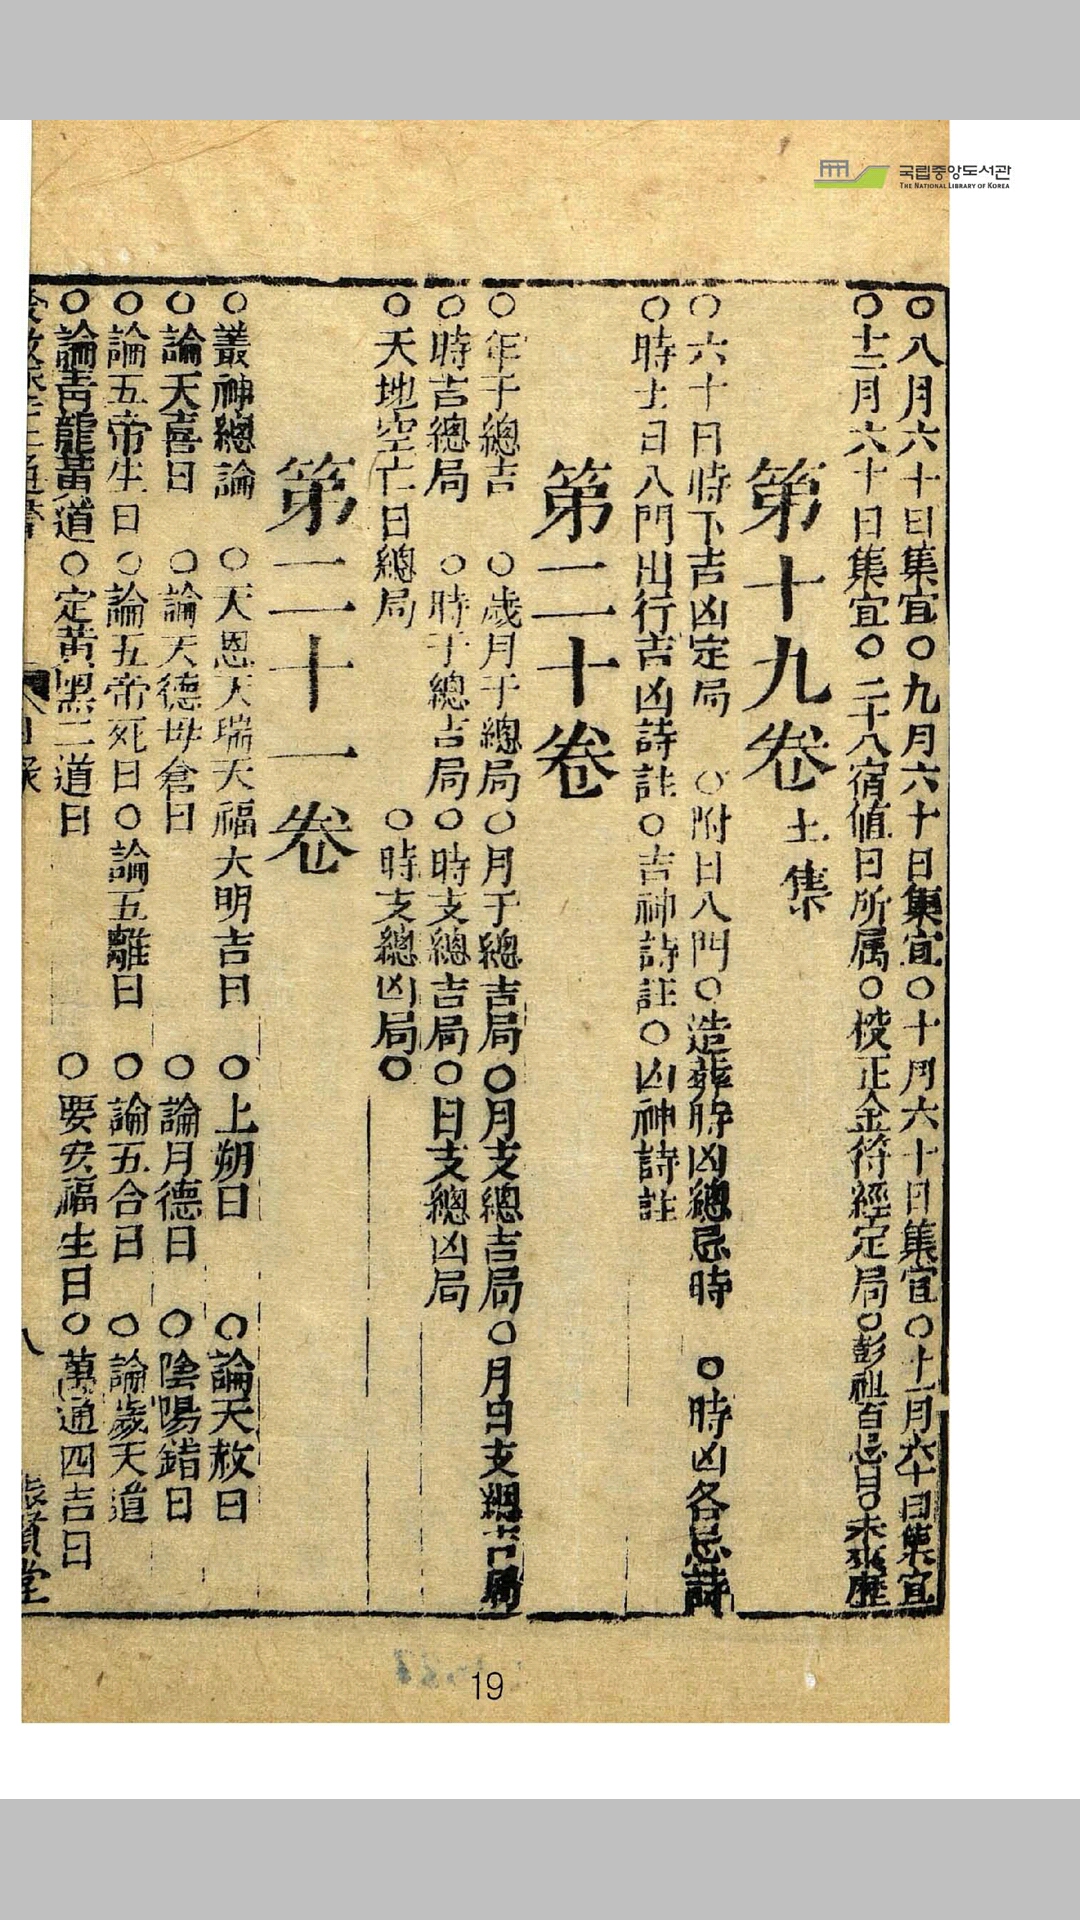 국립중앙도서관
THE NATIONAL LIBRARY OF KOREA
○八月六十日集宜○九月六十日集宜○十月六十日集宜○十一月六十日集宜
○十二月六十日集宜○二十八宿値日所属○校正金符經定局○彭祖百忌日○未來歷
第十九卷 土集
○六十日時下吉凶定局 ○附日八門○造葬將凶總忌時 ○時凶各忌詩
○時士日八門出行吉凶詩註○吉神詩註○凶神詩註
第二十卷
○年干總吉 ○歲月干總局○月干總吉局○月支總吉局○月日支總吉局
○時吉總局 ○時干總吉局○時支總吉局○日支總凶局
○天地空亡日總局 ○時支總凶局○
第二十一卷
○叢神總論 ○天恩天瑞天福大明吉日 ○上朔日 ○論天赦日
○論天喜日 ○論天德母倉日 ○論月德日 ○陰陽錯日
○論五帝生日○論五帝死日○論五離日 ○論五合日 ○論歲天道
○論青龍黃道○定黃黑二道日 ○要安福生日○萬通四吉日
八
19